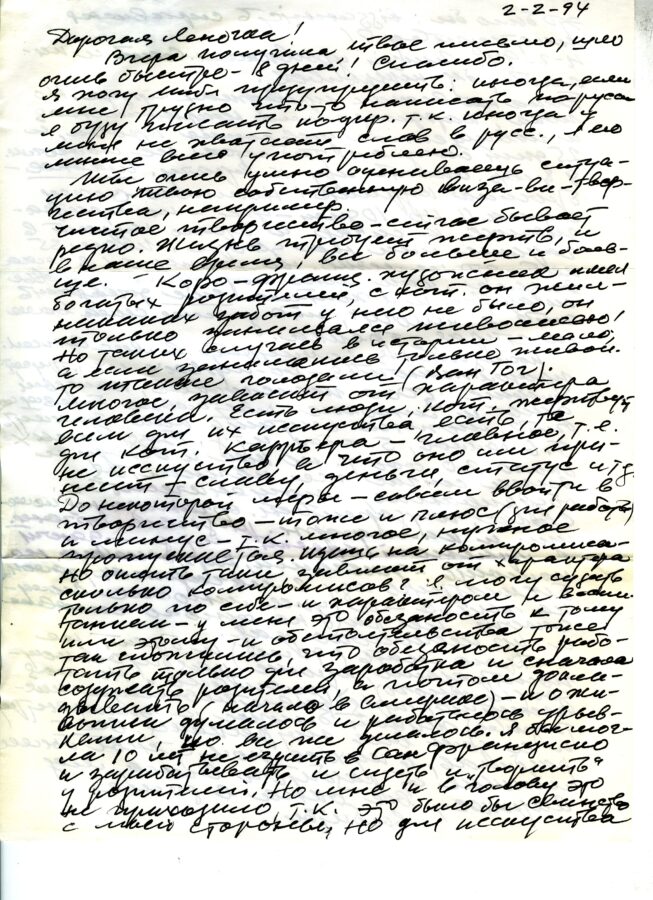 2-2-94
Дорогая Леночка!
Вчера получила твое письмо, шло
очень быстро - 8 дней! Спасибо.
Я хочу тебя предупредить: иногда, если
мне трудно что-то написать по русс.
я буду писать по т.к. иногда у
меня не хватает слов в русс., я его
меньше всего употребляю.
Ты очень умно оцениваешь ситуа-
цию твою собственную виза-ви-твор-
чества, например.
Чистое творчество - сейчас бывает
редко. Жизнь требует жертв, и
в наше время, все больше и боль-
ше. Коро - франц. художник имел
богатых родителей, с кот. он жил -
никаких забот у него не было, он
только занимался живописью!
Но таких случаев в истории - мало,
а если занимались только живоп.
то голодали (Ван Гог).
Многое зависит от характера
человека. Есть люди, кот. жертвуют
всем для их искусства, есть те
для кот. карриера - главное, т.е.
не искусство, а что оно им при-
несет - славу, деньги, статус и т.д.
До некоторой меры - совсем в
творчество - тоже и плюс (для работы)
и минус - т.к. многое, нужное
пропускается. идти на компромисс -
Но опять таки зависит от характера
сколько компромисов? Я могу судить
только по себе - и характером и воспи-
танием - у меня это обязаность к тому
или этому - и обстоятельства тоже
так сложились, что обязаность рабо-
тать только для заработка и сначала
содержать родителей, а потом
(начало в Америке) - и о жи-
вописи думалось и работалось урыв-
ками, но все же удалось. Я бы мог-
ла 10 лет не в Сан Франциско
и зарабатывать и сидеть и "творить"
у родителей! Но мне и в голову это
не приходило, т.к. это было бы свинство
с моей стороны, но для исскуства